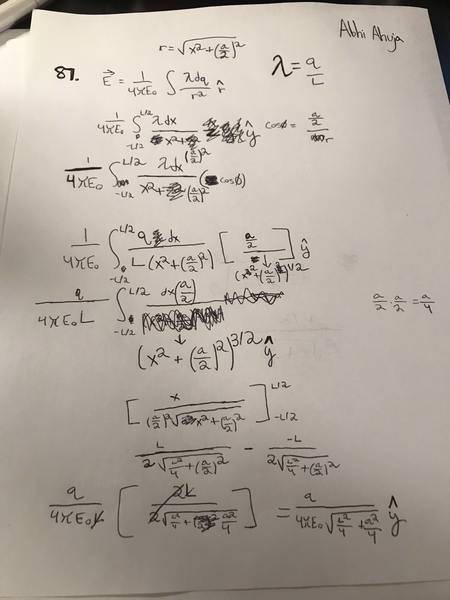 Abhi Ahuja
r = √(x² + (a/2)²)
87. E⃗ = 1/4πE₀ ∫ λdq/r² r̂
λ = q/L
1/4πE₀ ∫_{-L/2}^{L/2} λdx/x²+ ŷ cosϕ = (a/2)/r
1/4πE₀ ∫_{-L/2}^{L/2} λdx/(x²+(a/2)²) (cosϕ)
1/4πE₀ ∫_{-L/2}^{L/2} q dx/L(x²+(a/2)²) [(a/2)/(x²+(a/2)²)^{1/2}] ŷ
q/4πE₀L ∫_{-L/2}^{L/2} dx(a/2)
a/2 · a/2 = a/4
↓
(x² + (a/2)²)^{3/2} ŷ
[x/(a/2)²√(x²+(a/2)²)]_{-L/2}^{L/2}
L/2√(L²/4+(a/2)²) − -L/2√(L²/4+(a/2)²)
q/4πE₀L [2L/2√(a/4 + a²/4)] = q/4πE₀√(L²/4+a²/4) ŷ